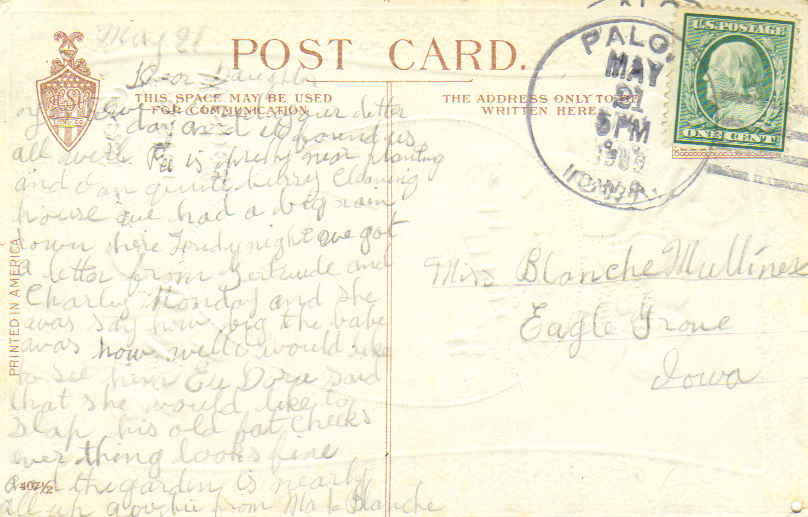 May 21
POST CARD.
Dear Daughter
THIS SPACE MAY BE USED
FOR COMMUNICATION
THE ADDRESS ONLY TO BE
WRITTEN HERE
letter
day and it found us
all well Pa is pretty near planting
and I am quite busy cleaning
house we had a big rain
down here night we got
a letter from Gertrude and
Charley Monday and she
was say how big the babe
was now well I would like
to see him Eu Dora said
that she would like to
slap his old fat cheeks
ever thing looks fine
and the garden is nearly
all up goodbie from Ma to Blanche
Miss Blanche Mullines
Eagle Grove
Iowa
PALO,
MAY
21
5 PM
1909
IOWA
U.S. POSTAGE
ONE CENT
PRINTED IN AMERICA
407 1/2